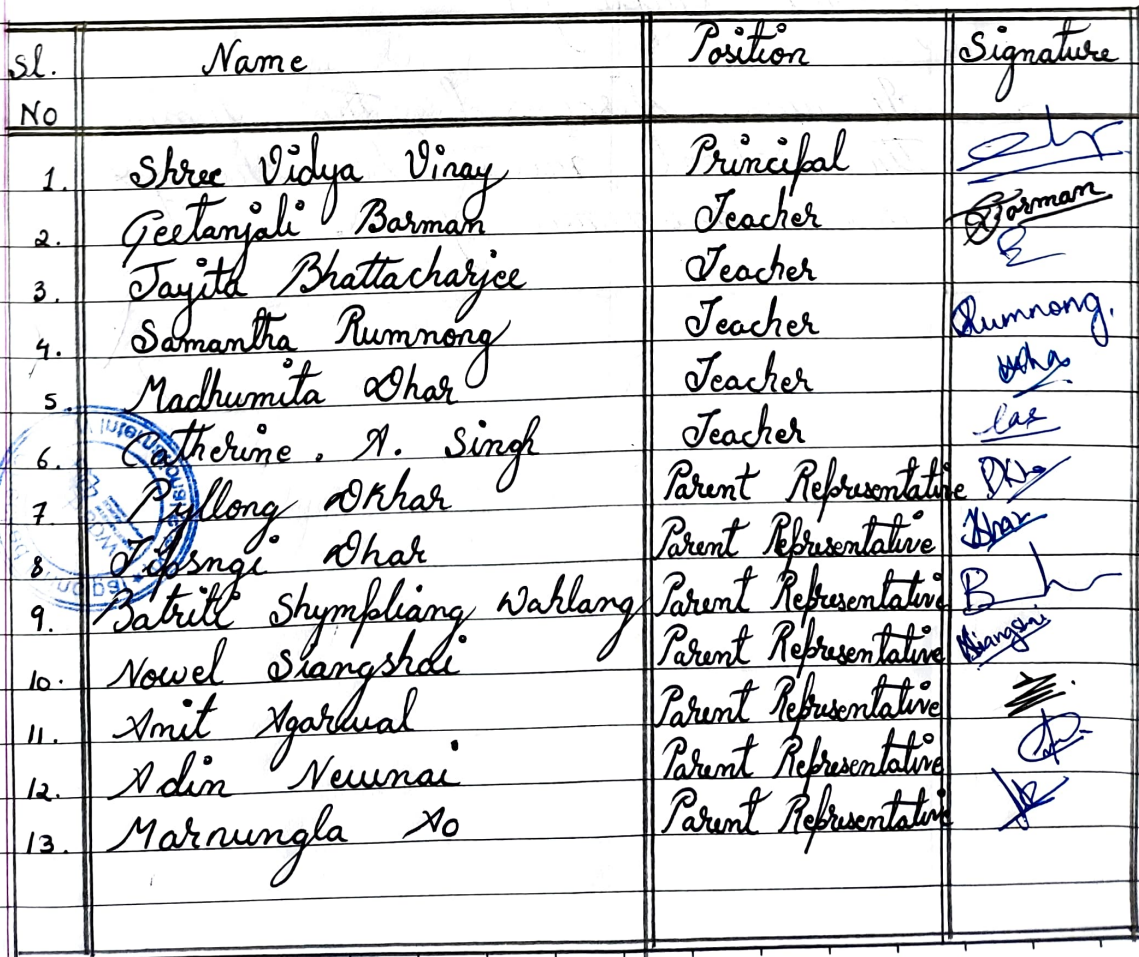 Sl. No Name Position Signature
1. Shree Vidya Vinay Principal
2. Geetanjali Barman Teacher Barman
3. Jayita Bhattacharjee Teacher
4. Samantha Rumnong Teacher Rumnong.
5. Madhumita Dhar Teacher
6. Catherine. A. Singh Teacher
7 Pyllong Dkhar Parent Representative
8. Dhar Parent Representative
9. Batriti Shympliang Wahlang Parent Representative
10. Nowel Siangshai Parent Representative
11. Amit Agarwal Parent Representative
12. Adin Newnai Parent Representative
13. Marnungla Ao Parent Representative